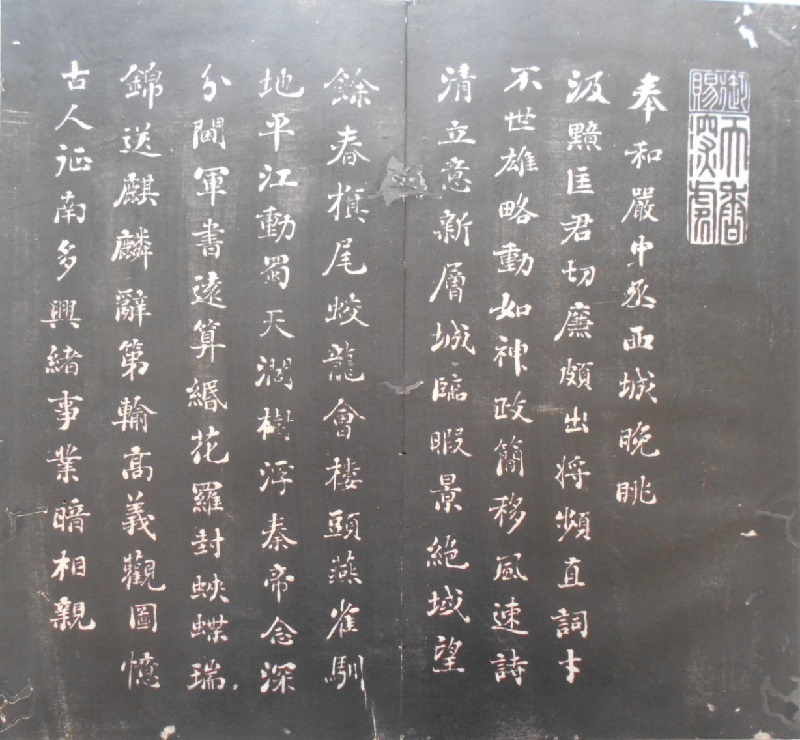 御賜
奉和嚴中丞西城晚眺
汲黯匡君切廉頗出將頻直詞才
不世雄略動如神政簡移風速詩
清立意新層城臨暇景絕域望
餘春旗尾蛟龍會楼頭燕雀馴
地平江動蜀天濶樹浮秦帝念深
分閫軍書遠算緡花羅封蛺蝶瑞
錦送麒麟辭第輸高義觀圖憶
古人征南多興緒事業暗相親